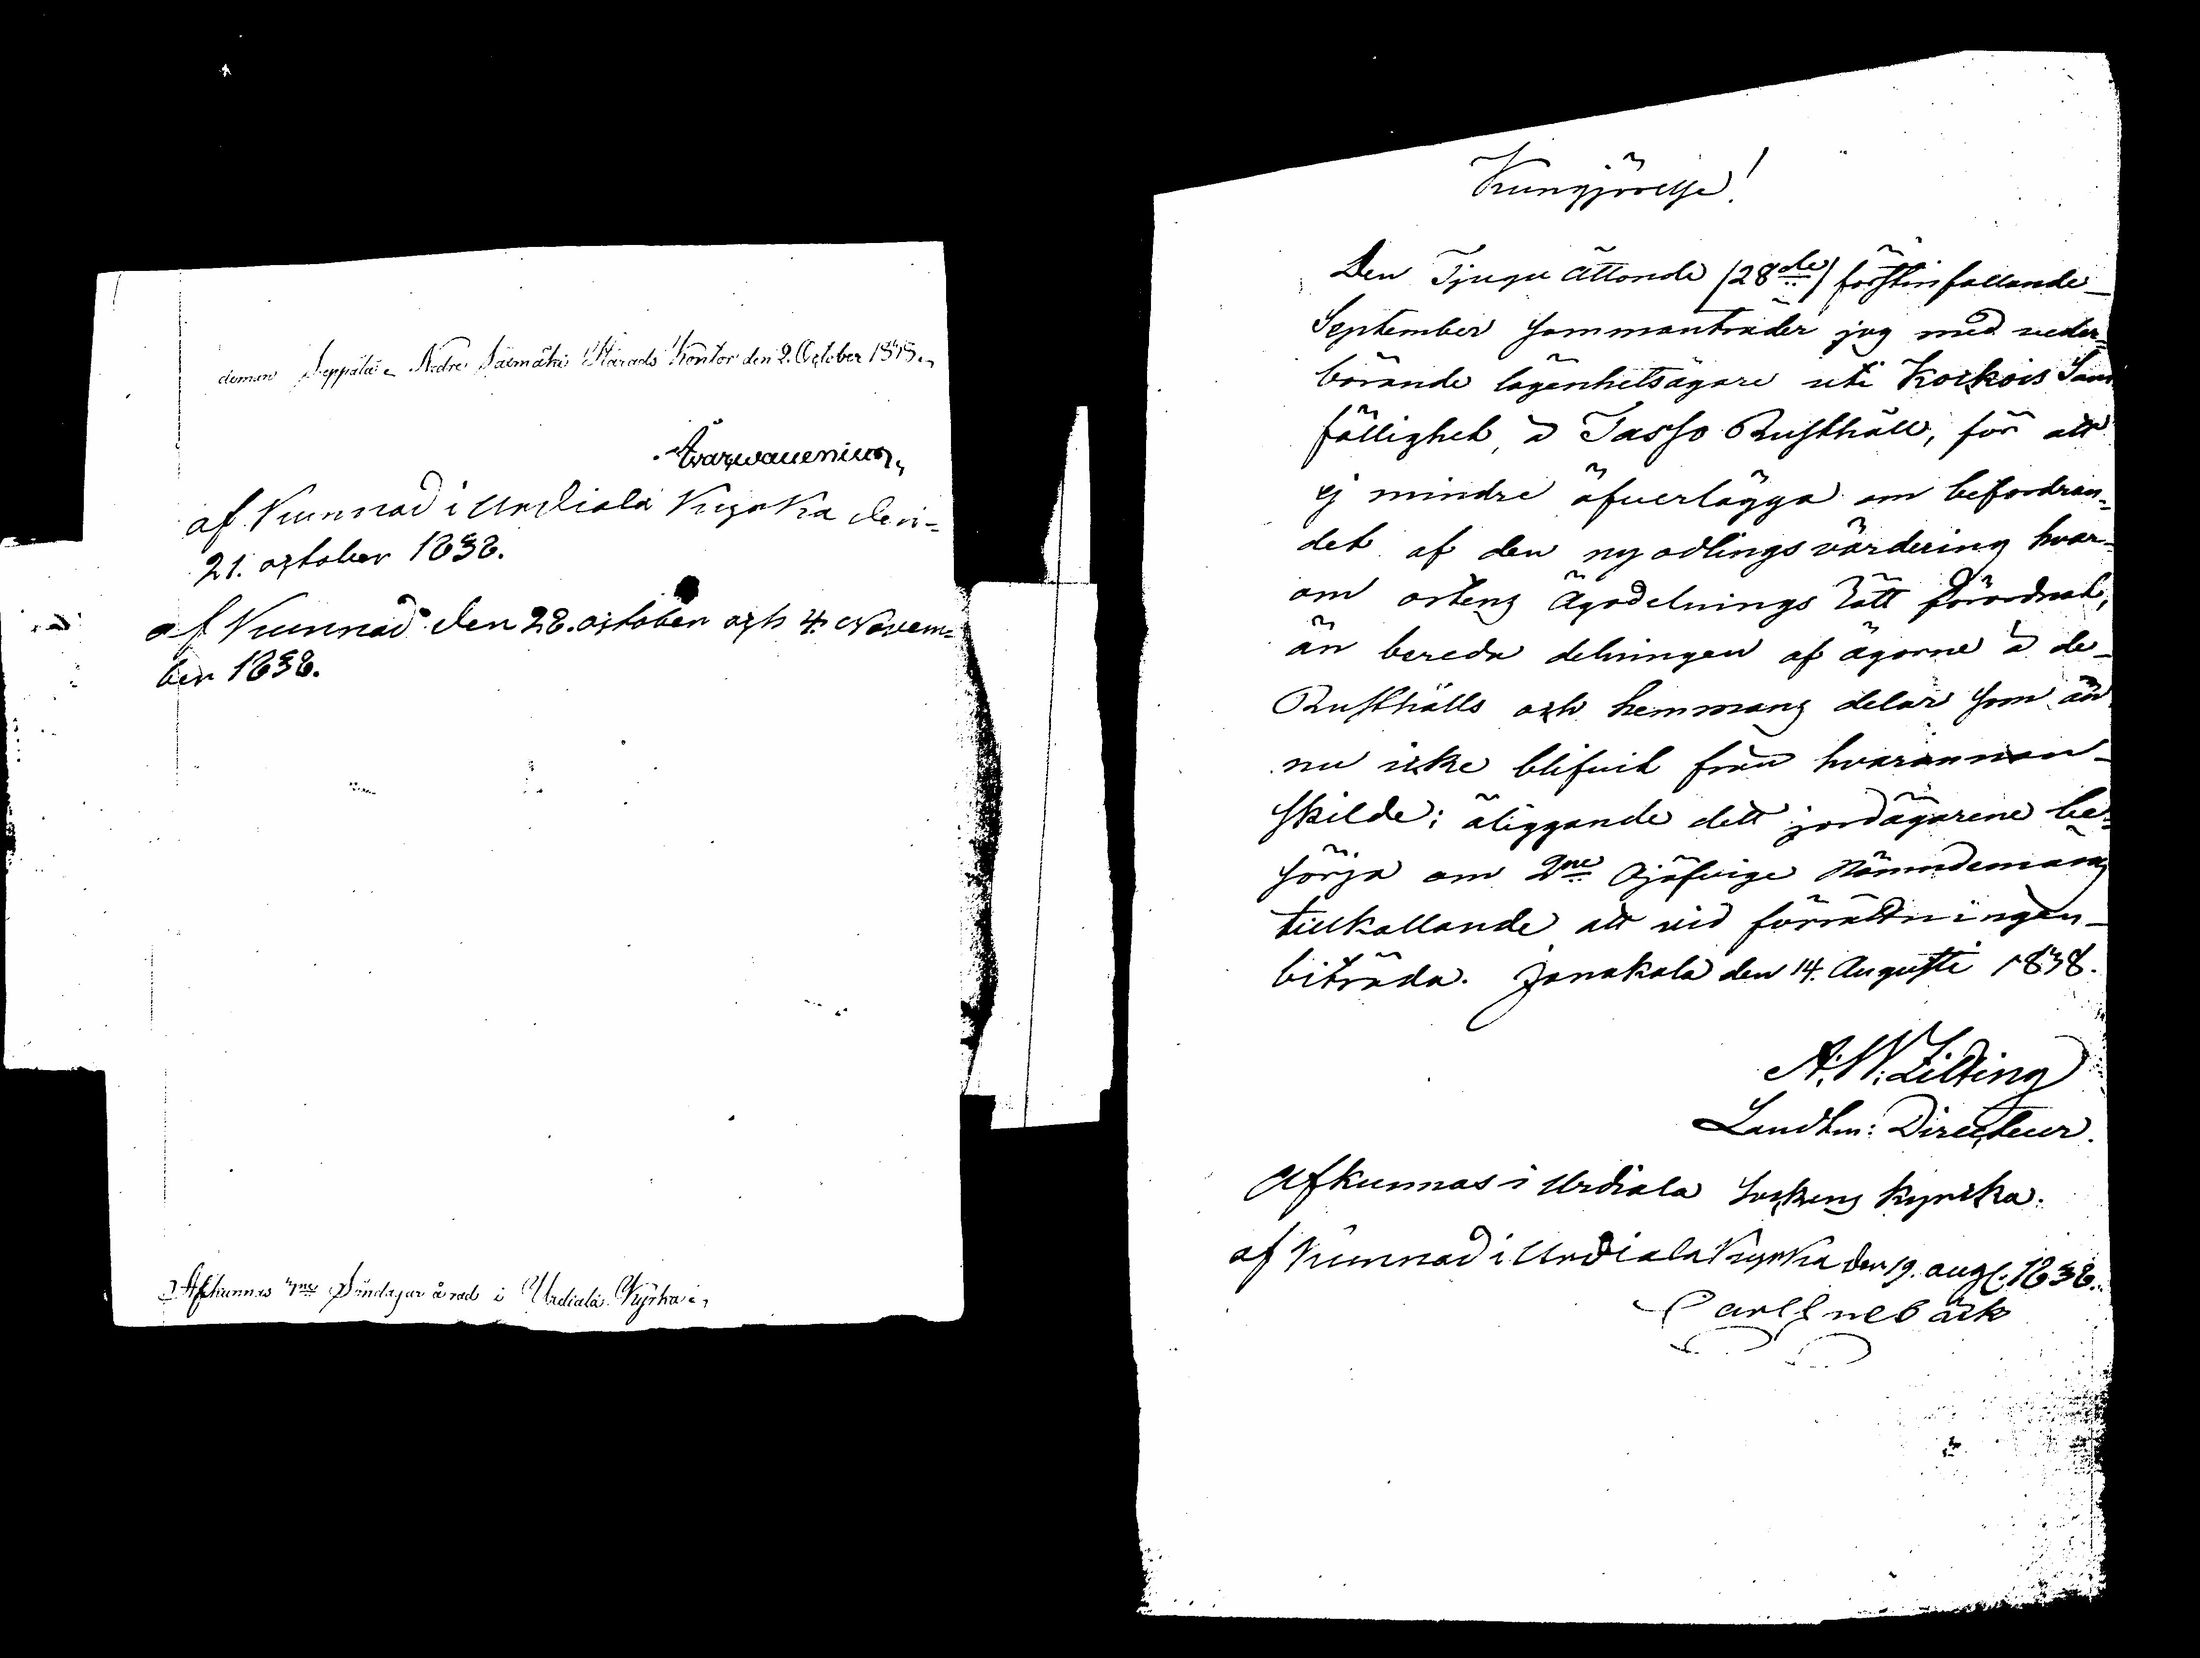 deman Seppälä e Nedre Säsmäki Härads Kontor den 2. October 1838.
af Kunnad i Urdiala Kyrka den=
21. october 1838.
af Kunnad den 28. october och 4. Novem=
ber 1838.
Afkunnas 3ne Söndagar å rad i Urdiala Kyrka.
Kungjörelse!
Den Tjugu åttonde (28de) förstinfallande
September sammanträder jag med veder=
börande lägenhetsägare uti Koskois Sam
fällighet, å Tasso Rusthåll, för att
ej mindre öfverlägga om befordran=
det af den nyodlings värdering hvar=
om ortens Ägodelnings Rätt förordnat,
än bereda delningen af ägorne å de
Rusthålls och hemmans delar som än
nu icke blifvit från hvarannan
skilde; åliggande dett jordägarene be=
sörja om 2ne Ojäfvige Nämndemans
tillkallande att vid förrättningen
biträda. Janakala den 14. Augusti 1838.
A. W. Lilting
Landtm: Directeur.
Afkunnas i Urdiala Sockens kyrcka.
af Kunnad i Urdiala Kyrka den 19. aug. 1838.
Carl Enebäck